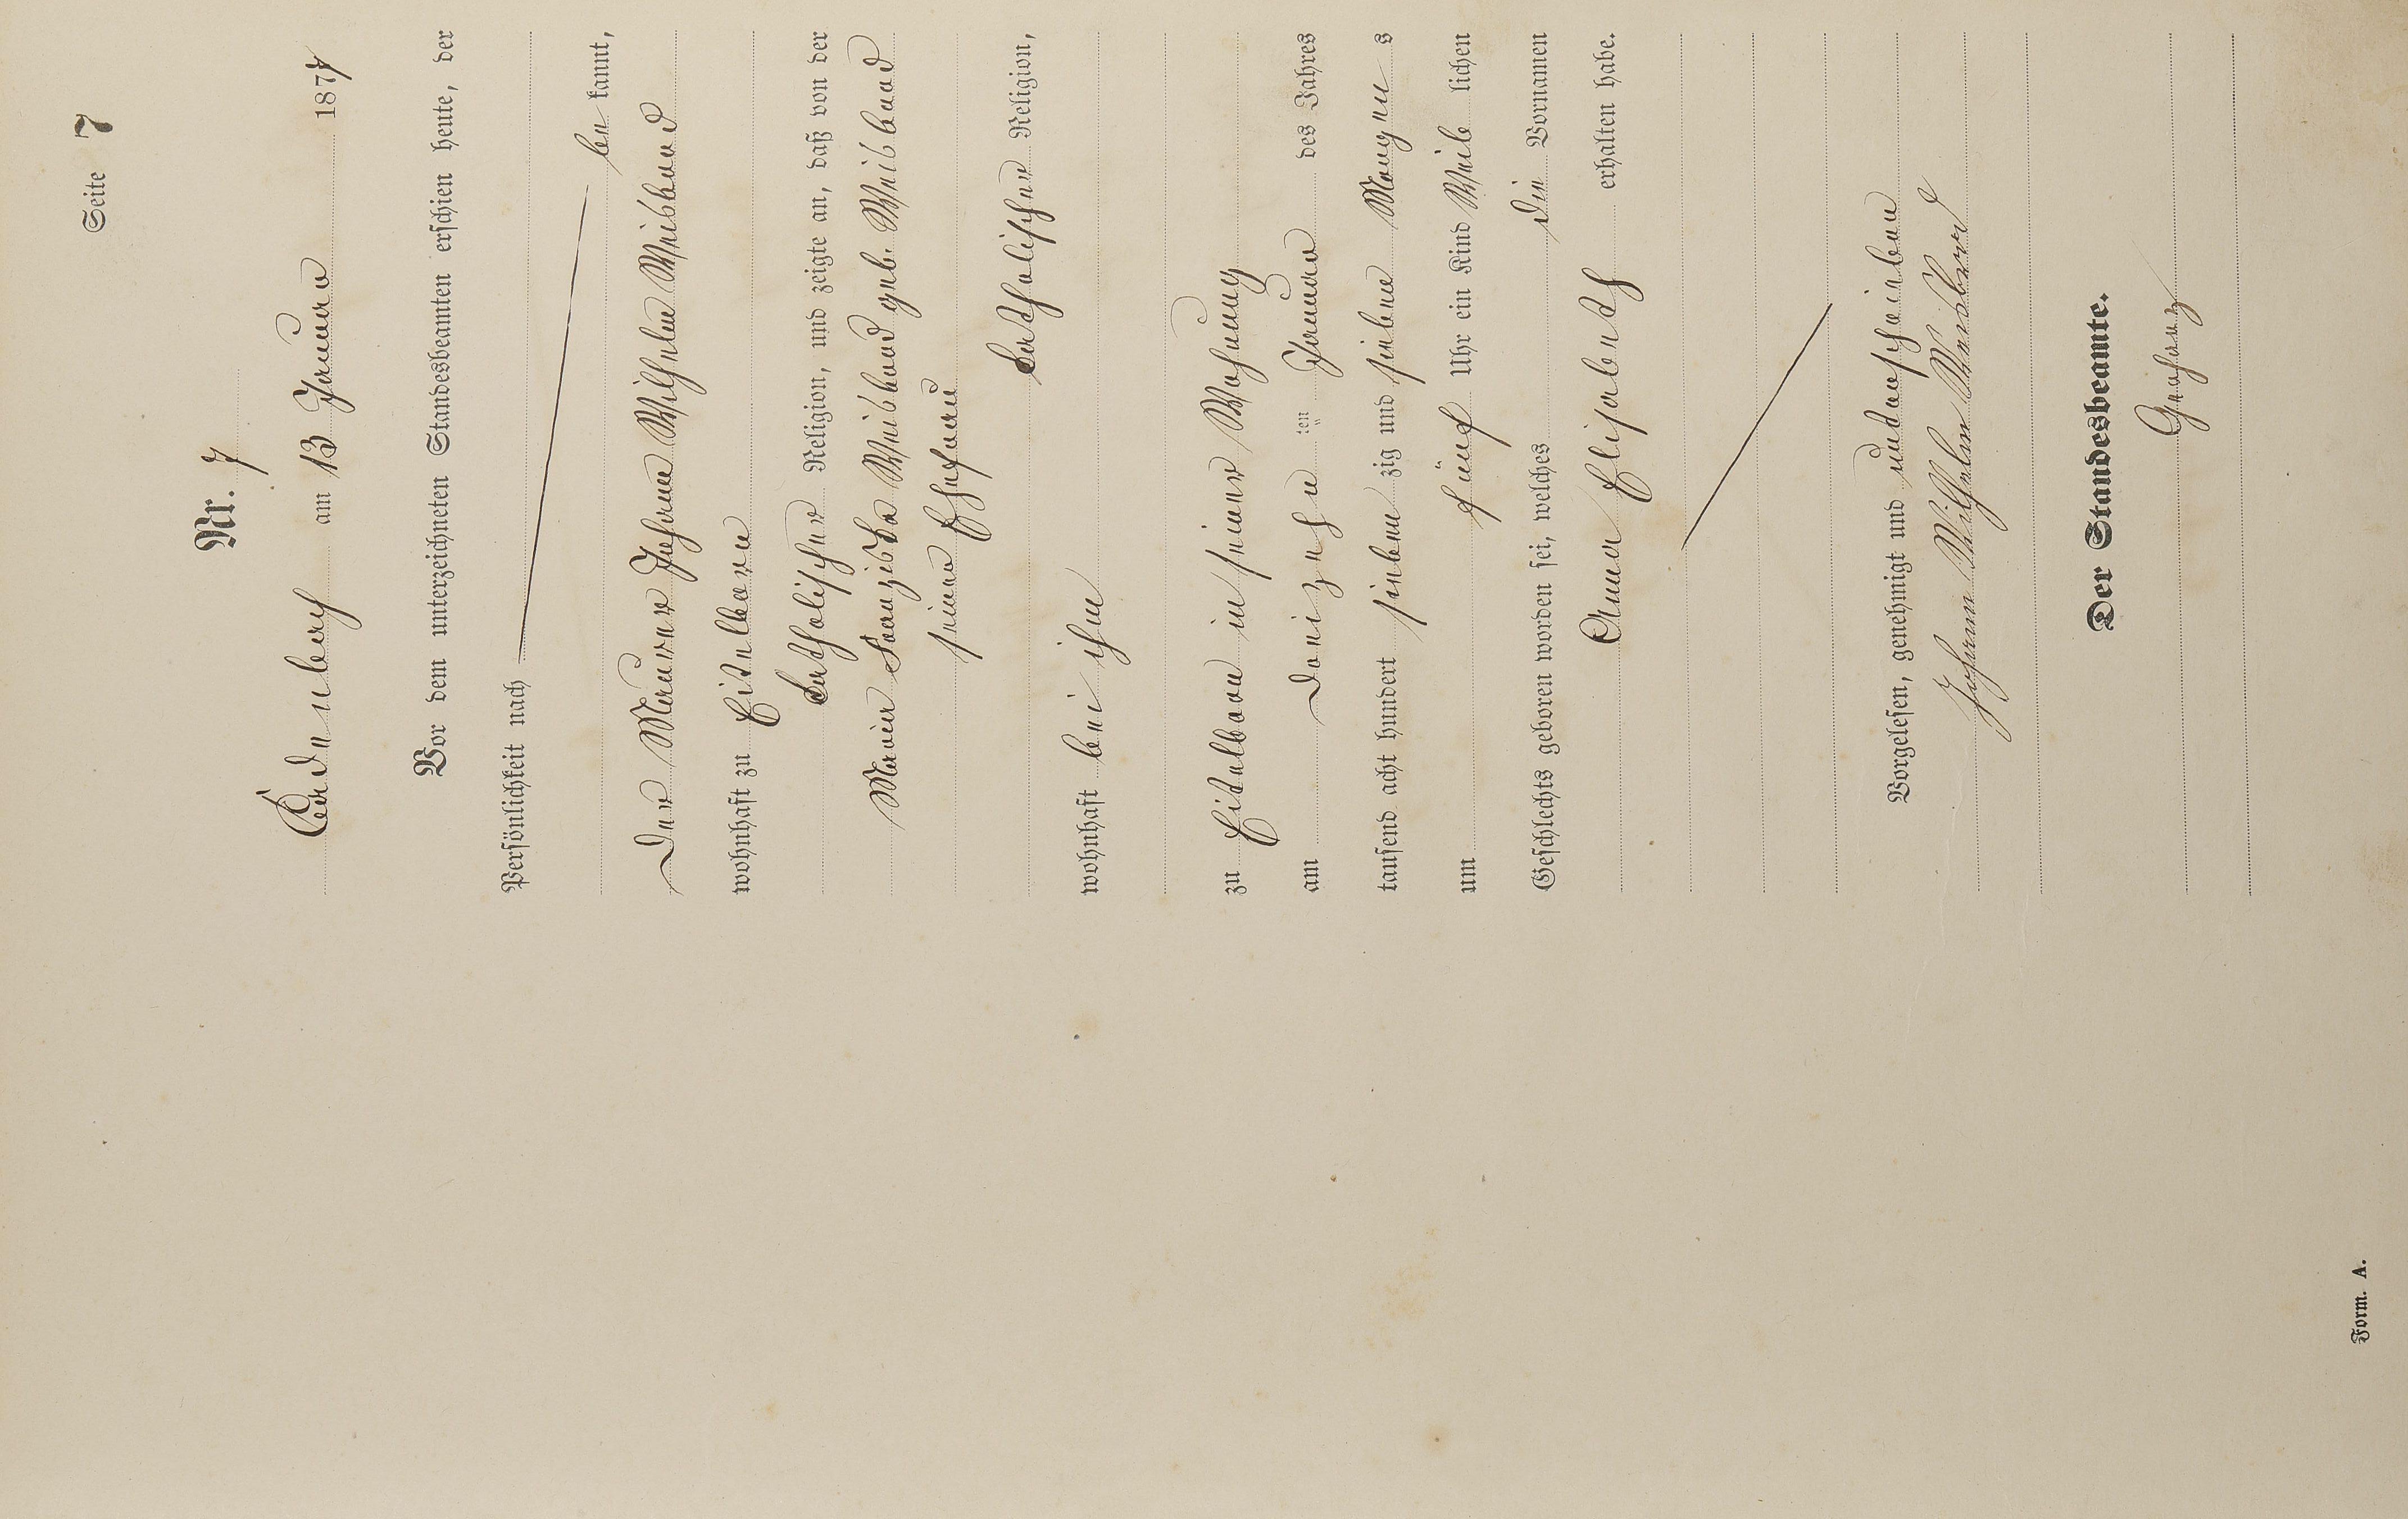 Seite 7
Nr. 7
Cadenbach am 13 Januar 1877
Vor dem unterzeichneten Standesbeamten erschien heute, der
Persönlichkeit nach
be kannt,
der Maurer Johann Wilhelm Weisbard
wohnhaft zu Eitelborn
katholischer Religion, und zeigte an, daß von der
Maria Franziska Weisbard geb. Weisbard
seiner Ehefrau
katholischer Religion,
wohnhaft bei ihm
zu Eitelborn in seiner Wohnung
am dreizehn ten Januar des Jahres
tausend acht hundert sieben zig und sieben Morgen s
um fünf Uhr ein Kind Weib lichen
Geschlechts geboren worden sei, welches die Vornamen
Anna Elisabeth erhalten habe.
Vorgelesen, genehmigt und unterschrieben
Johann Wilhelm Weisbard
Der Standesbeamte.
Form. A.